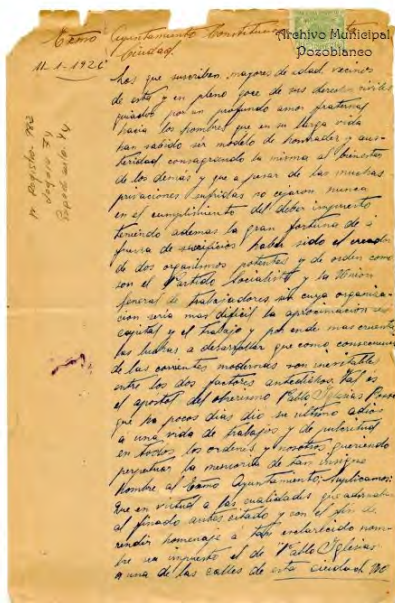 Archivo Municipal
Pozoblanco
Excmo Ayuntamiento Constitucional
Ciudad
11-1-1926
Nº Registro
Legajo 74
Los que suscriben, mayores de edad vecinos
de esta y en pleno goce de sus derechos civiles
guiados por un profundo amor fraternal
hacia los hombres que en su larga vida
han sabido ser modelo de honradez y aus-
teridad consagrando la misma al bienestar
de los demás y que a pesar de las muchas
privaciones sufridas no cejaron nunca
en el cumplimiento del deber impuesto
teniendo ademas la gran fortuna de á
fuerza de sacrificios haber sido el creador
de dos organismos potentes y de orden como
son el Partido Socialista y la Unión
General de trabajadores sin cuya organiza-
ción seria mas dificil la aproximación del
capital y el trabajo y por ende mas cruentas
las luchas a desarrollar que como consecuencia
de las corrientes modernas son inevitables
entre los dos factores antedichos. Tal es
el apostol del obrerismo Pablo Iglesias
que ha pocos dias dió su ultimo adios
a una vida de trabajos y de
en todos los ordenes y nosotros queriendo
perpetuar la memoria de tan insigne
hombre al Excmo Ayuntamiento; Suplicamos:
Que en virtud a las cualidades que
al finado antes citado y con el fin de
rendir homenage a tan esclarecido nom-
bre sea impuesto el de "Pablo Iglesias"
a una de las calles de esta ciudad